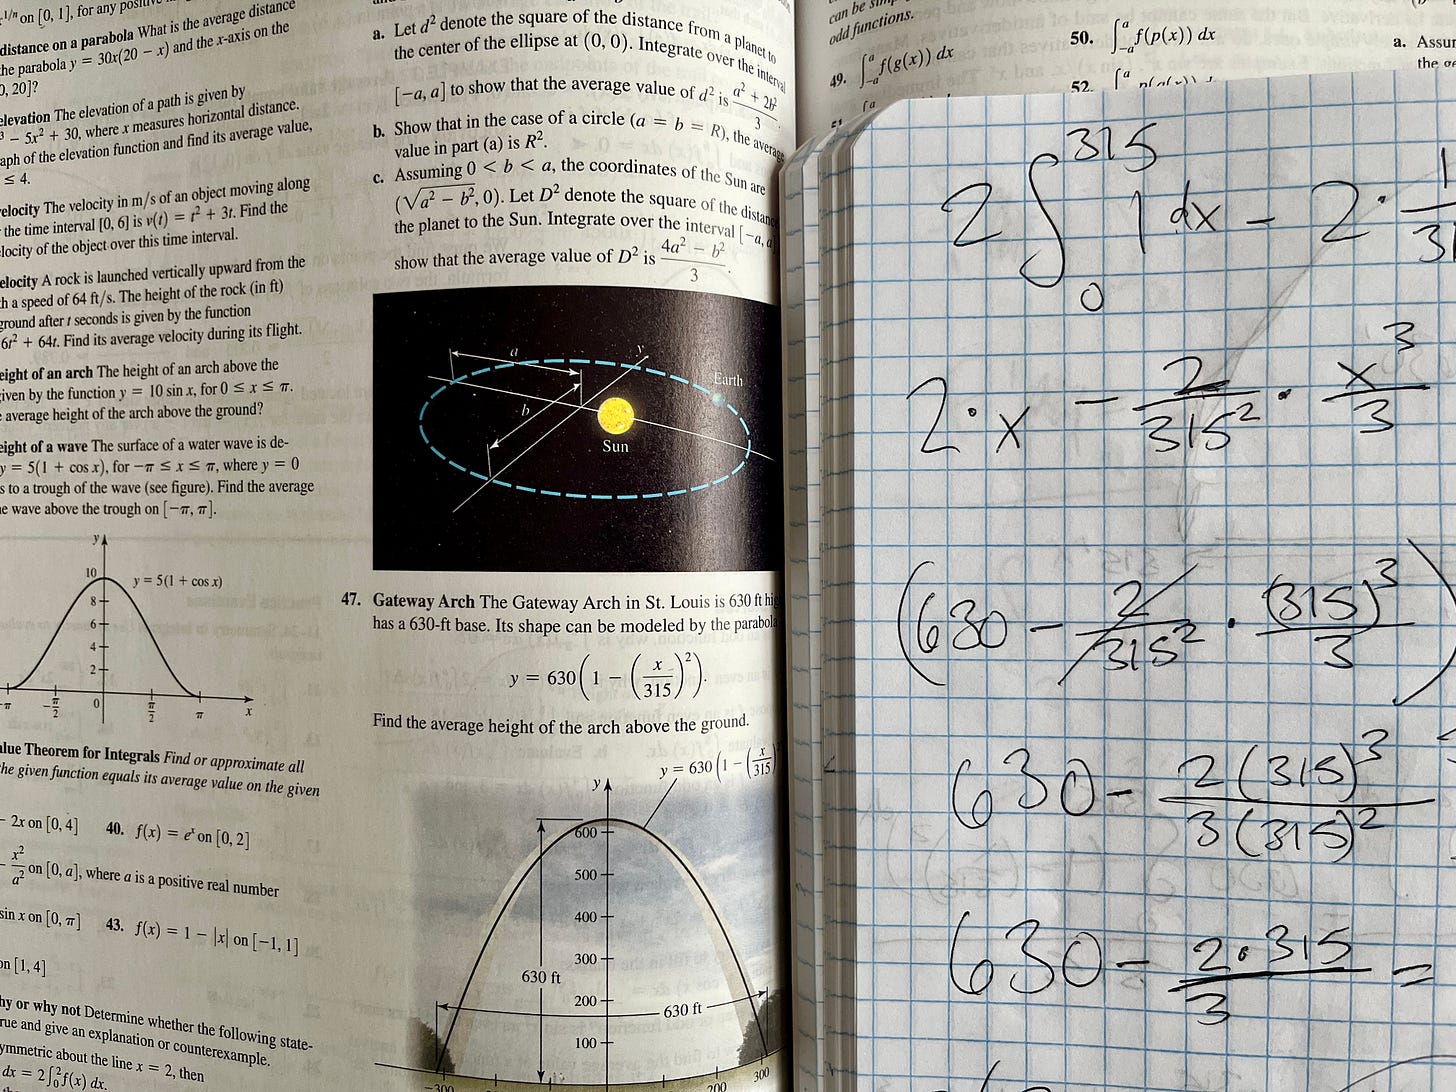 1/n on [0, 1], for any
distance on a parabola What is the average distance
the parabola y = 30x(20 − x) and the x-axis on the
0, 20]?
elevation The elevation of a path is given by
3 − 5x² + 30, where x measures horizontal distance.
aph of the elevation function and find its average value,
≤ 4.
elocity The velocity in m/s of an object moving along
the time interval [0, 6] is v(t) = t² + 3t. Find the
locity of the object over this time interval.
elocity A rock is launched vertically upward from the
h a speed of 64 ft/s. The height of the rock (in ft)
ground after t seconds is given by the function
6t² + 64t. Find its average velocity during its flight.
eight of an arch The height of an arch above the
iven by the function y = 10 sin x, for 0 ≤ x ≤ π.
e average height of the arch above the ground?
eight of a wave The surface of a water wave is de-
y = 5(1 + cos x), for −π ≤ x ≤ π, where y = 0
s to a trough of the wave (see figure). Find the average
e wave above the trough on [−π, π].
y
10
y = 5(1 + cos x)
8
6
4
2
−π −π/2 0 π/2 π x
alue Theorem for Integrals Find or approximate all
he given function equals its average value on the given
− 2x on [0, 4] 40. f(x) = eˣ on [0, 2]
− x²/a² on [0, a], where a is a positive real number
sin x on [0, π] 43. f(x) = 1 − |x| on [−1, 1]
on [1, 4]
hy or why not Determine whether the following state-
rue and give an explanation or counterexample.
ymmetric about the line x = 2, then
dx = 2∫₀² f(x) dx.
a. Let d² denote the square of the distance from a planet to
the center of the ellipse at (0, 0). Integrate over the interval
[−a, a] to show that the average value of d² is (a² + 2b²)/3.
b. Show that in the case of a circle (a = b = R), the average
value in part (a) is R².
c. Assuming 0 < b < a, the coordinates of the Sun are
(√(a² − b²), 0). Let D² denote the square of the distance
the planet to the Sun. Integrate over the interval [−a, a
show that the average value of D² is (4a² − b²)/3.
a
y
Earth
b
Sun
47. Gateway Arch The Gateway Arch in St. Louis is 630 ft hig
has a 630-ft base. Its shape can be modeled by the parabola
y = 630(1 − (x/315)²).
Find the average height of the arch above the ground.
y = 630(1 − (x/315)
y
600
500
400
300
200
100
630 ft
630 ft
−300 200 300
can be
odd functions.
49. ∫₋ₐᵃ f(g(x)) dx
50. ∫₋ₐᵃ f(p(x)) dx
52.
a. Assu
2 ∫₀³¹⁵ 1 dx − 2 · 1/31
2·x − 2/315² · x³/3
(630 − 2/315² · (315)³/3)
630 − 2(315)³/3(315)²
630 − 2·315/3 =